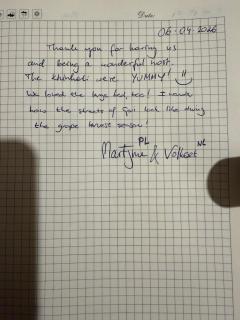 Date:
06-09-2026
Thank you for having us
and being a wonderful host.
The khinkali were YUMMY!
We loved the large bed, too! I wonder
how the streets of Gori look like during
the grape harvest season!
PL NL
Martyna & Volkert